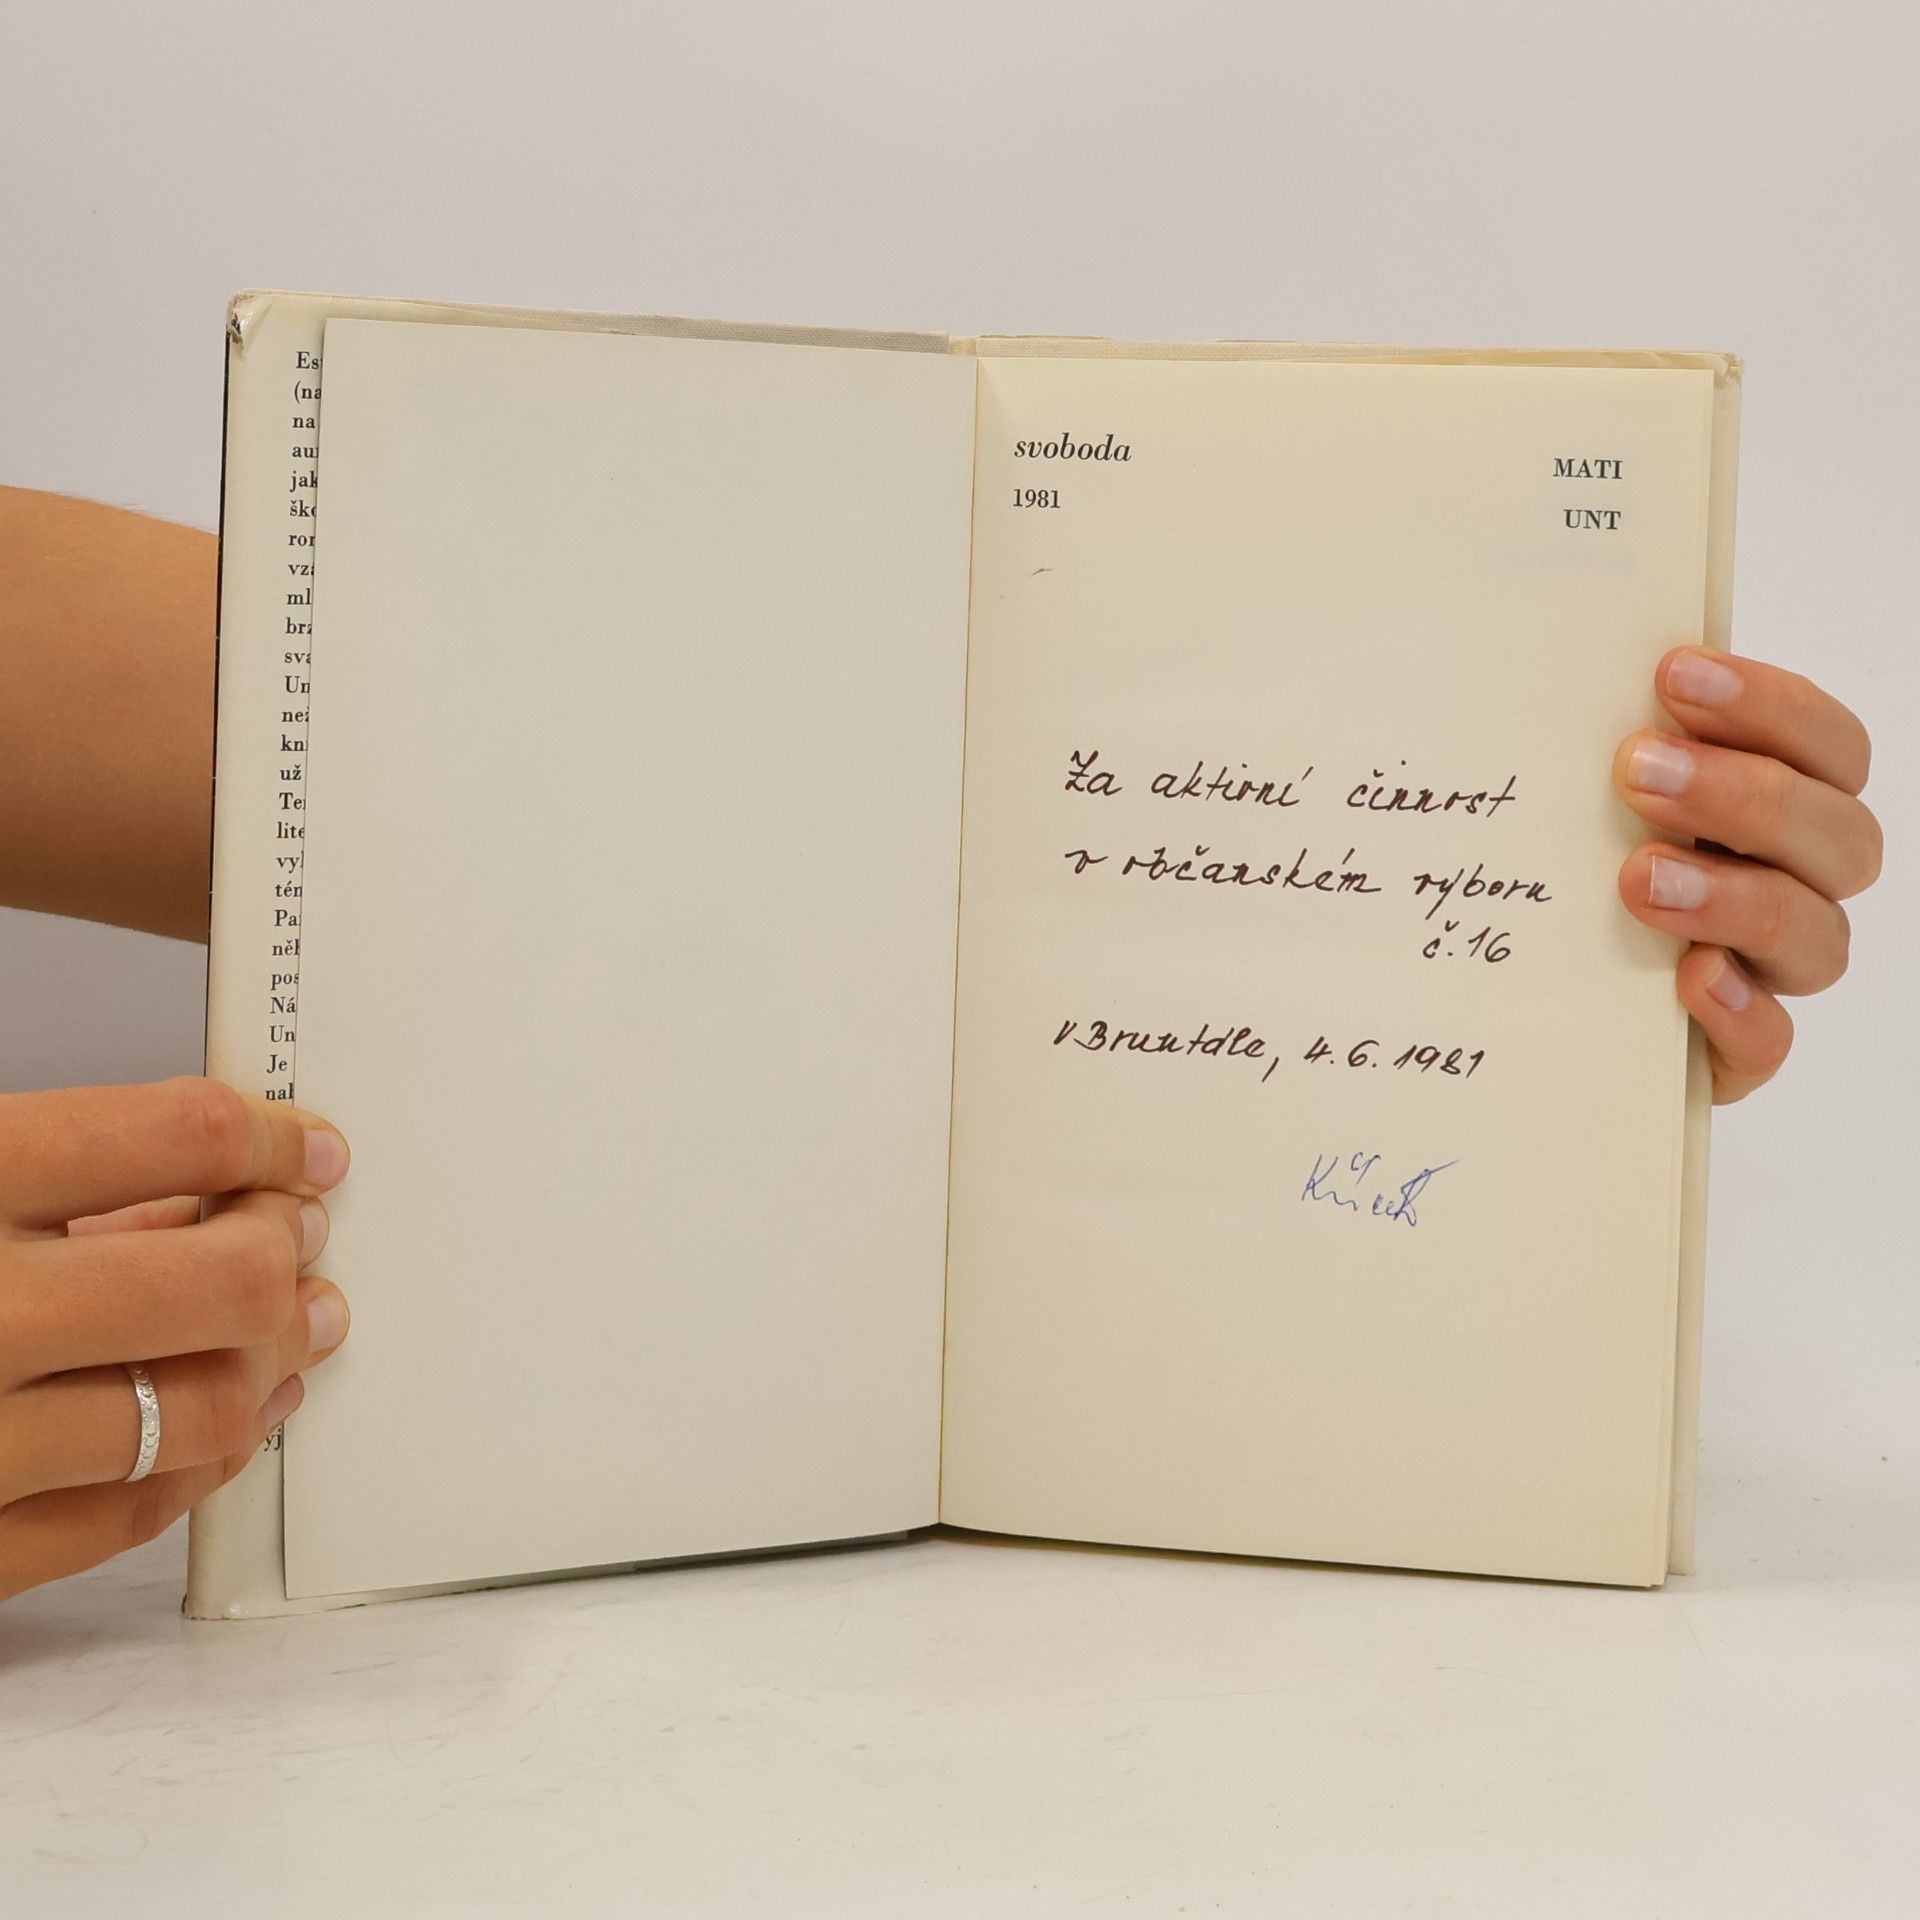 Es
(na
na
au
jak
ško
ror
vzá
ml
brz
sva
Un
než
kni
už
Te
lite
vyl
tén
Pa
něk
pos
Ná
Un
Je
nak
yj
svoboda
1981
MATI
UNT
Za aktivní činnost
v občanském výboru
č. 16
V Bruntále, 4. 6. 1981